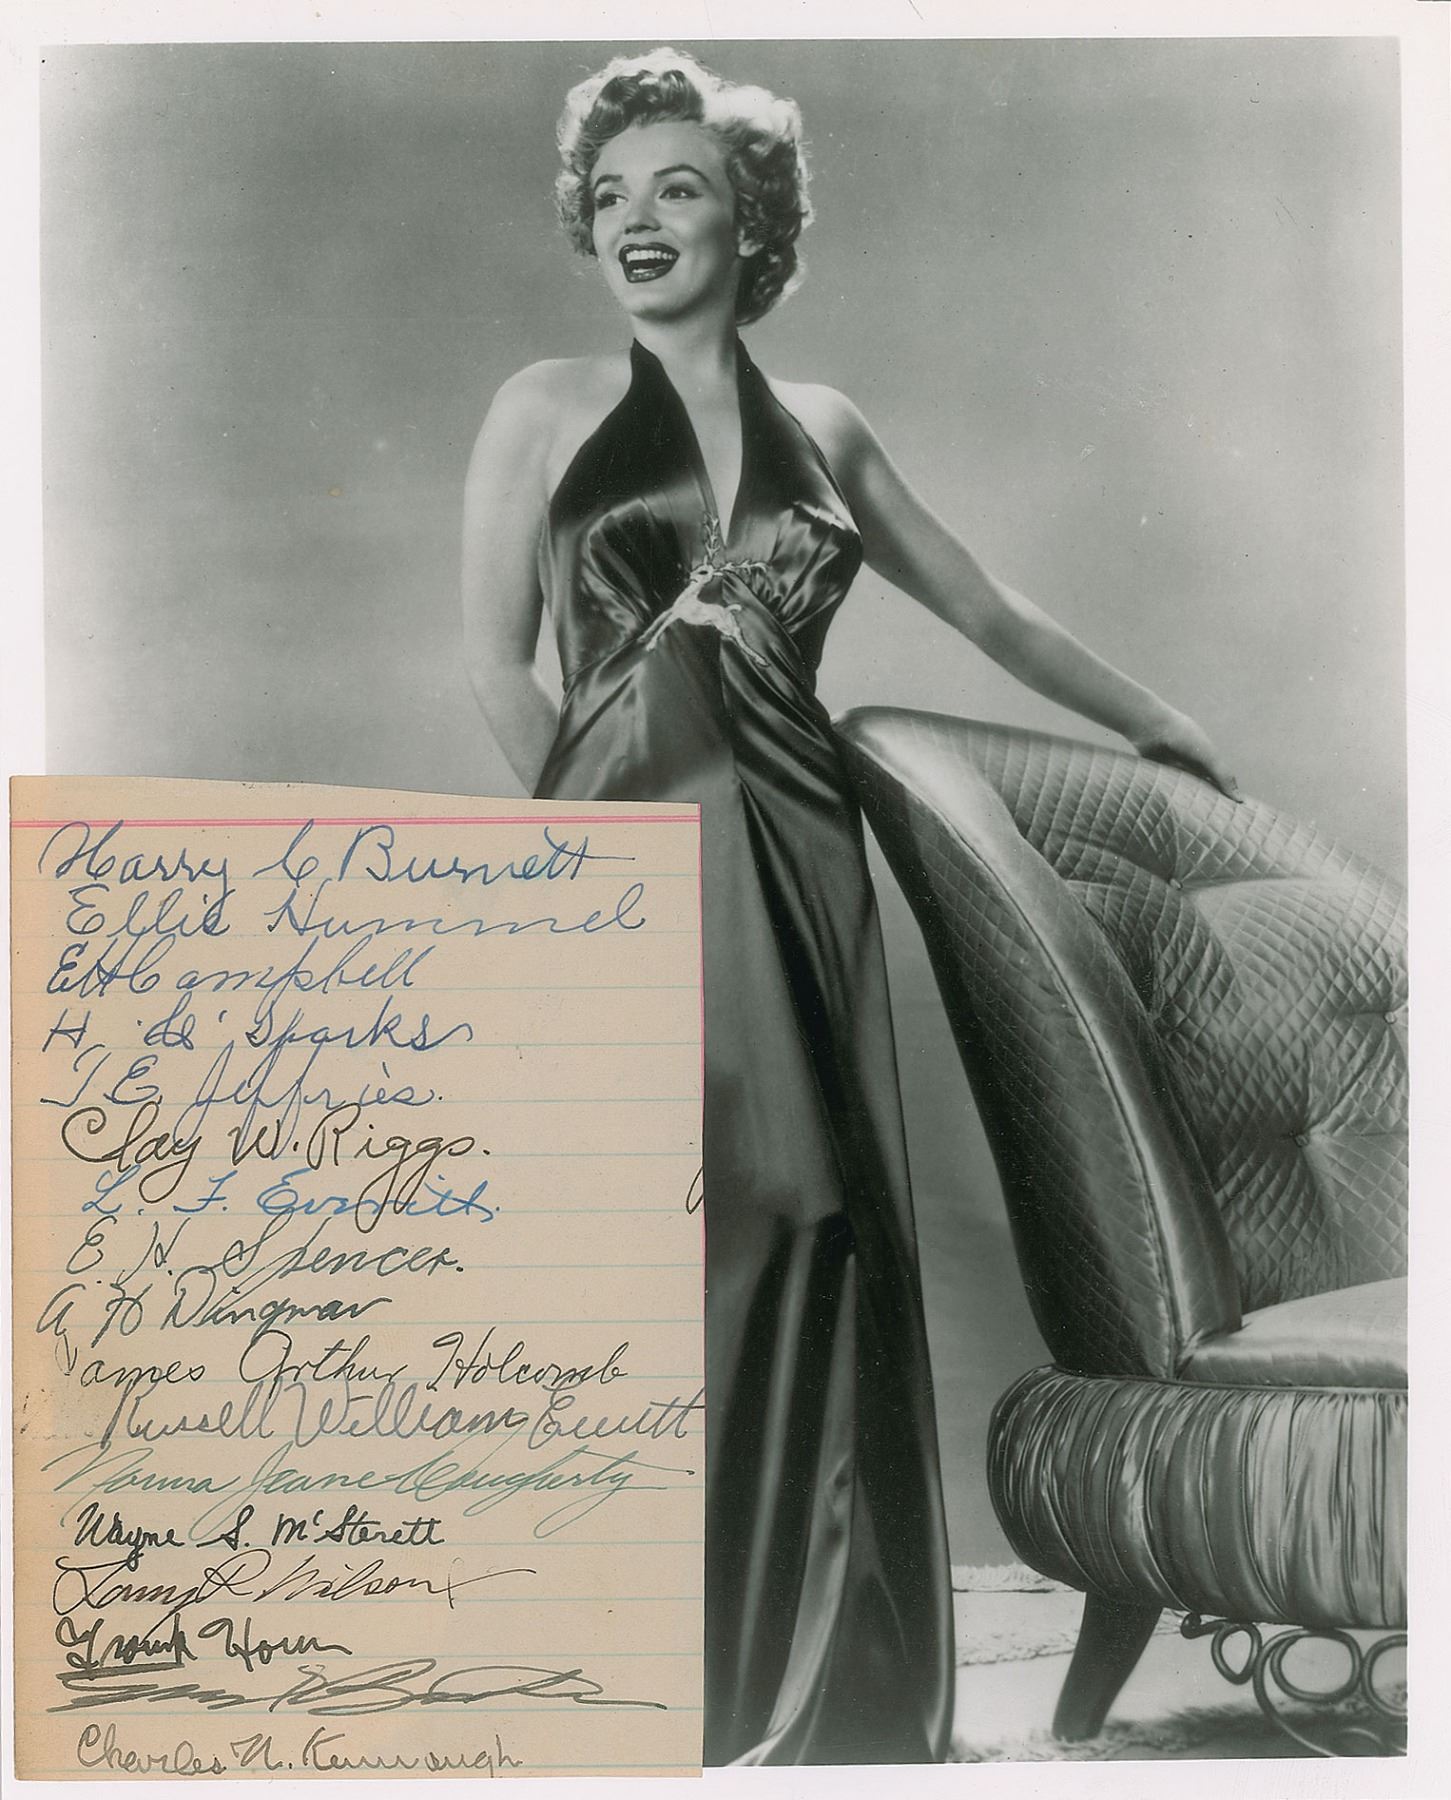 Harry C Burnett
Ellie Hummel
EH Campbell
H. Sparks
T E. Jeffries.
Clay W. Riggs.
L. F. Everitt.
E. H. Spencer.
A H Dingman
James Arthur Holcomb
Russell William Evutt
Norma Jeane Dougherty
Wayne S. McSterett
R Wilson
Frank Horn
Charles N. Kennaugh